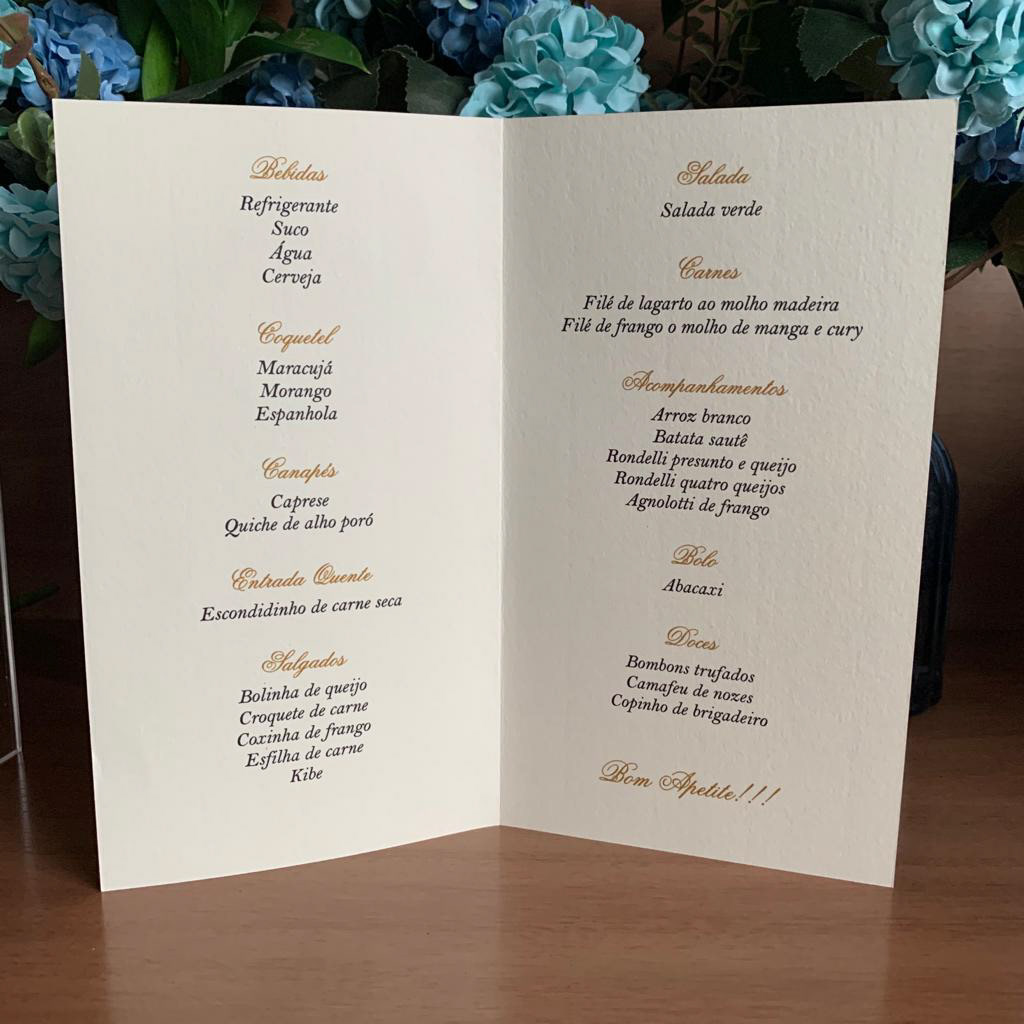 Bebidas
Refrigerante
Suco
Água
Cerveja
Coquetel
Maracujá
Morango
Espanhola
Canapés
Caprese
Quiche de alho poró
Entrada Quente
Escondidinho de carne seca
Salgados
Bolinha de queijo
Croquete de carne
Coxinha de frango
Esfilha de carne
Kibe
Salada
Salada verde
Carnes
Filé de lagarto ao molho madeira
Filé de frango o molho de manga e cury
Acompanhamentos
Arroz branco
Batata sautê
Rondelli presunto e queijo
Rondelli quatro queijos
Agnolotti de frango
Bolo
Abacaxi
Doces
Bombons trufados
Camafeu de nozes
Copinho de brigadeiro
Bom Apetite!!!